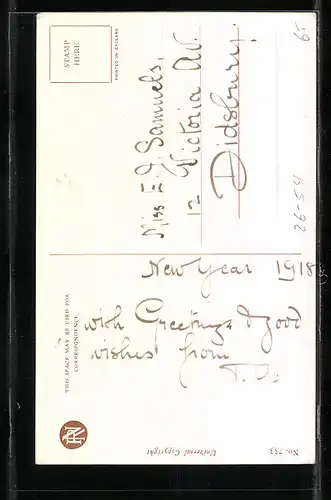 STAMP
HERE
PRINTED IN ENGLAND
Miss E. J. Samuels,
12 Victoria Av.
Didsbury.
65
26-54
THIS SPACE MAY BE USED FOR
CORRESPONDENCE.
New Year 1918
with Greetings & good
wishes from
Universal Copyright
No. 733